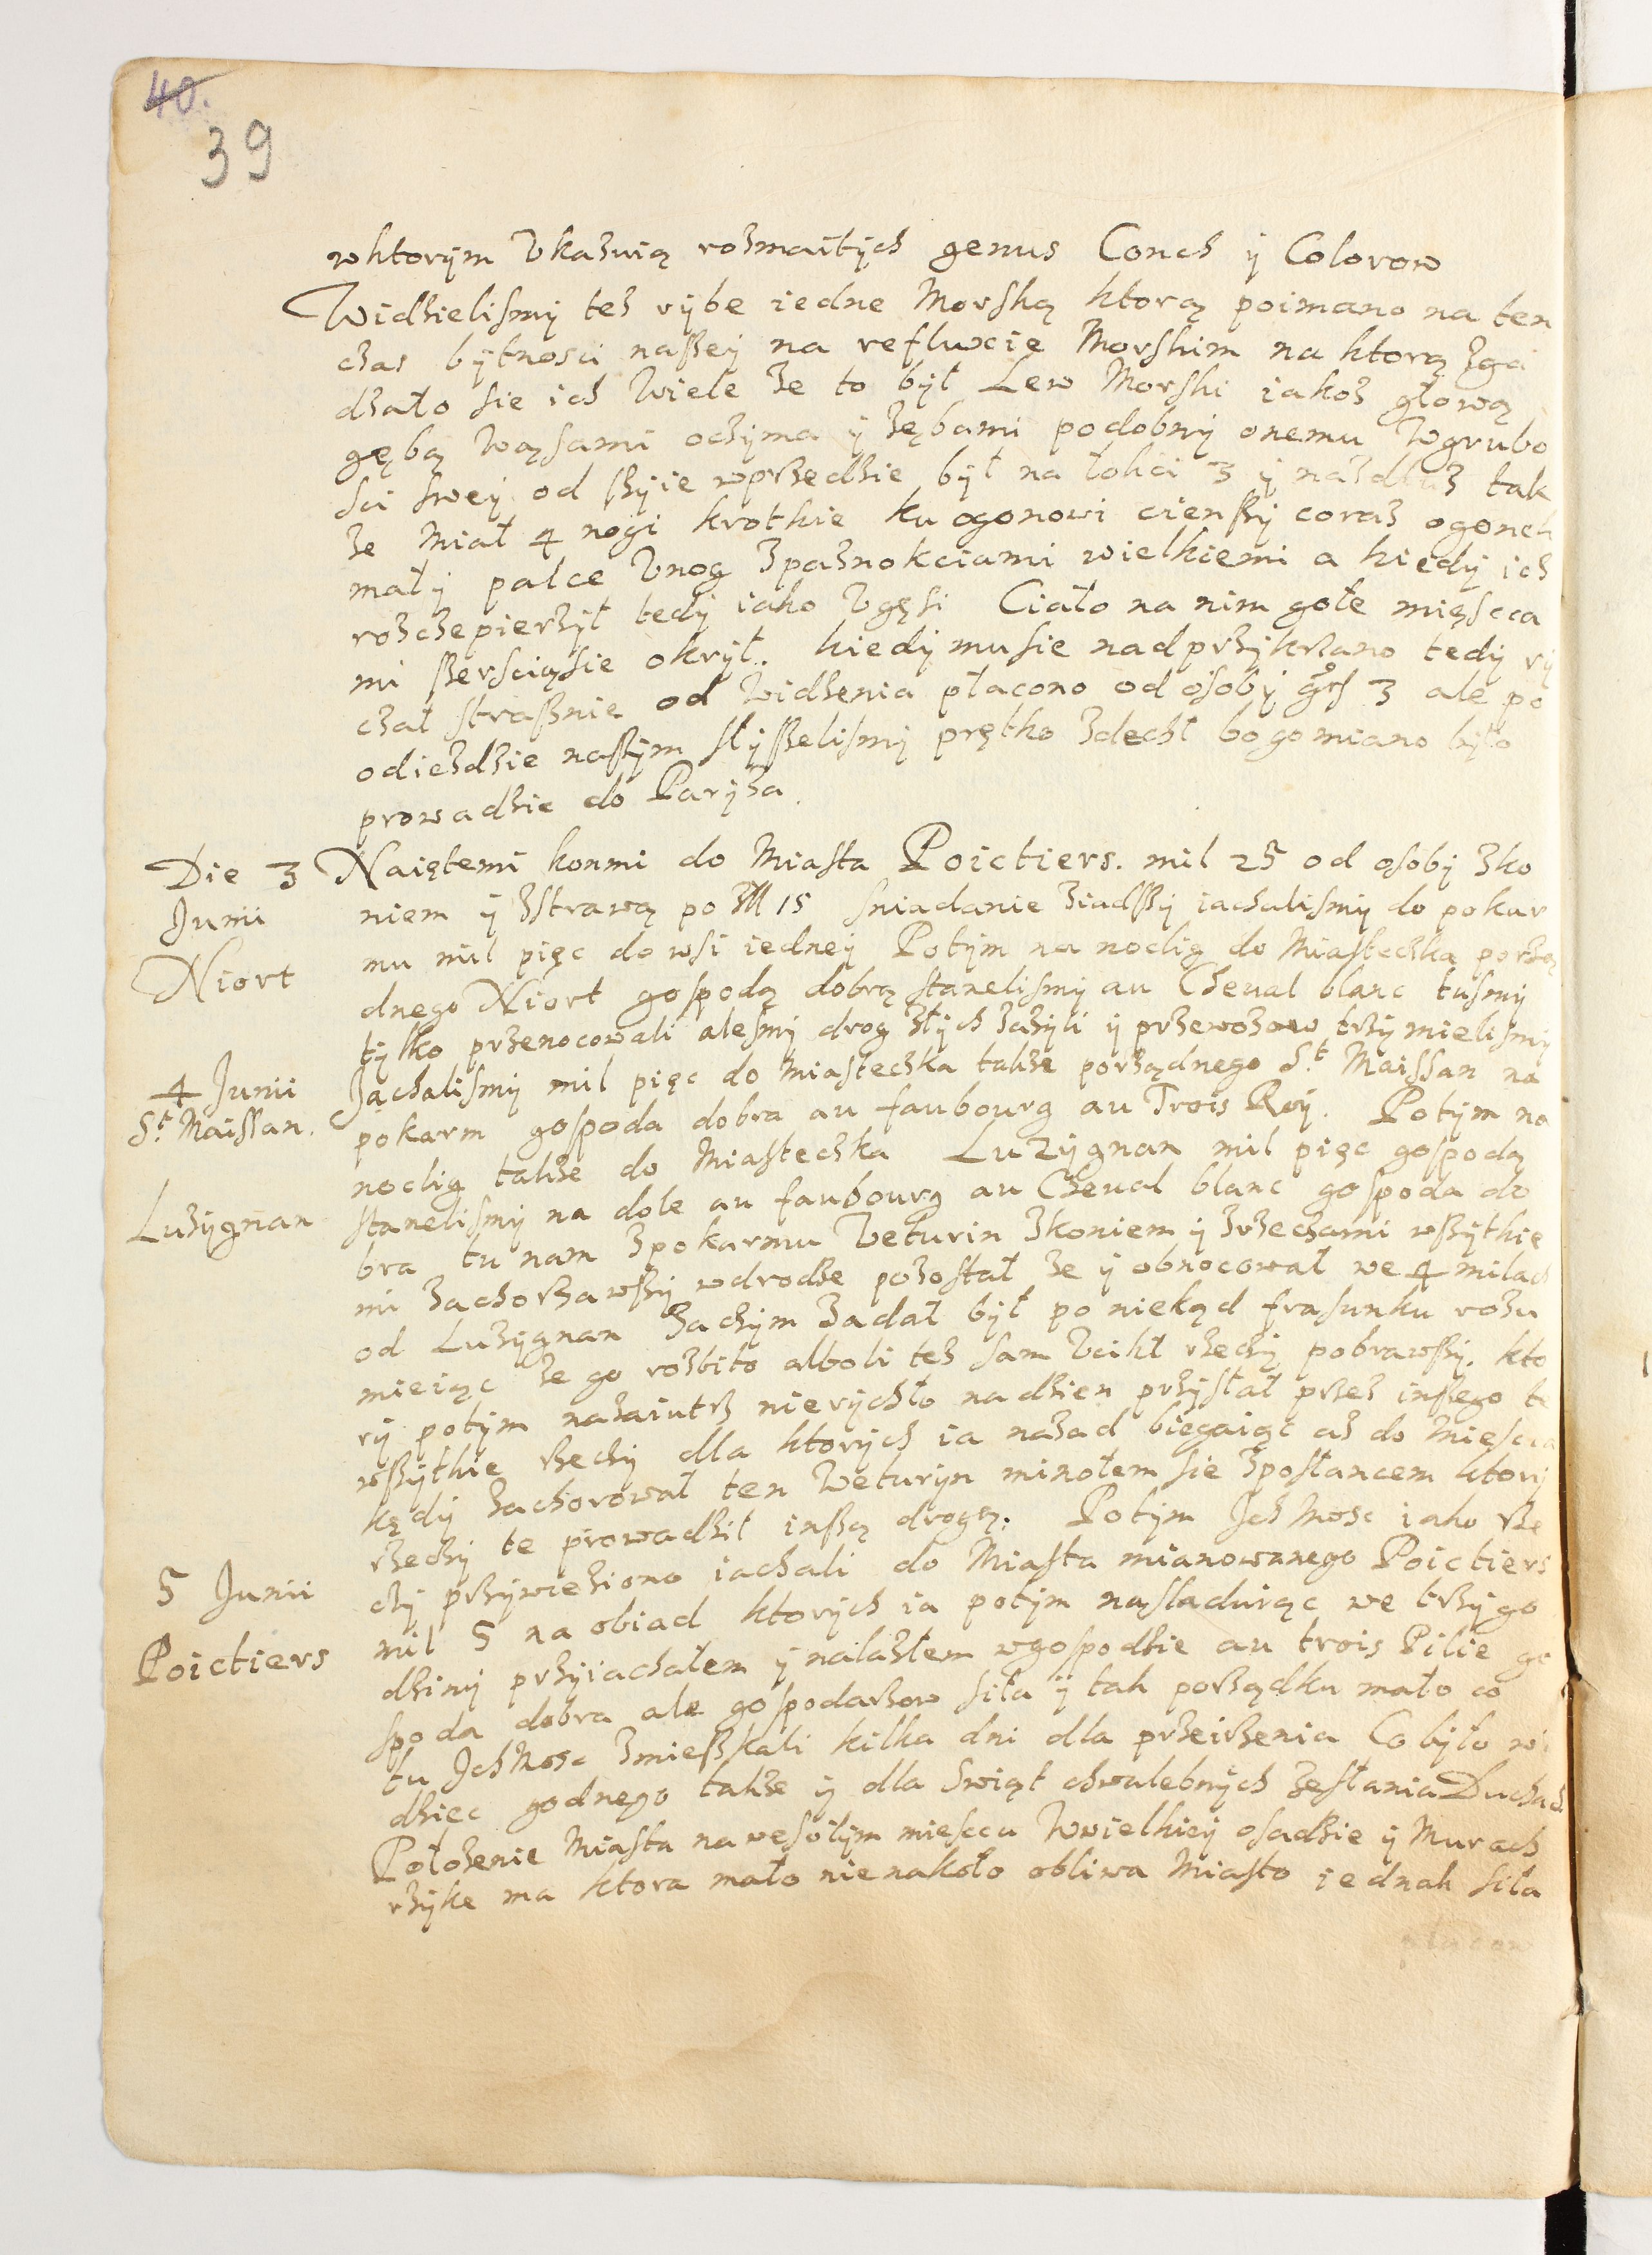 40.
39
w ktorym Vkazuią rozmaitych genus Conch y Colorow
Widzielismy tez rybe iedne Morską ktorą poimano na ten
czas bytnosci naszey na refluxie Morskim na ktorą zga
dzało sie ich wiele ze to był Lew Morski iakoz głową
gębą wąsami oczyma y zębami podobny onemu w grubo
sci swey od szyie w przedzie był na łokci 3 y nazdłuz tak
ze Miał 4 nogi krotkie ku ogonowi cienszy coraz ogonek
mały palce v nog z paznokciami wielkiemi a kiedy ich
rozczepierzył tedy iako v gęsi Ciało na nim gołe mięscca
mi szersciąsie okrył. kiedy mu sie nadprzykrzano tedy ry
czał strasznie od widzenia płacono od osoby grs 3 ale po
odiezdzie naszym słyszelismy prętko zdechł bo go miano było
prowadzic do Paryza.
Die 3
Junii
Niort
Naiętemi konmi do Miasta Poictiers. mil 25 od osoby z ko
niem y z strawą po 15 sniadanie ziadszy iachalismy do pokar
mu mil pięc do wsi iedney Potym na noclig do Miasteczka porzą
dnego Niort gospodą dobrą stanelismy au Cheual blanc tusmy
tylko przenocowali alesmy drog złych zazyli y przewozow trzy mielismy
4 Junii
St Maissan.
Jachalismy mil pięc do Miasteczka takze porządnego St Maissan na
pokarm gospoda dobra au faubourg au Trois Roy. Potym na
noclig takze do Miasteczka Luzygnan mil pięc gospodą
Luzygnan
stanelismy na dole au faubourg au Cheual blanc gospoda do
bra tu nam z pokarmu Veturin z koniem y z rzeczami wszytkie
mi zachorzawszy w drodze pozostał ze y obnocował we 4 milach
od Luzygnan Zaczym zadał był poniekąd frasunku rozu
mieiąc ze go rozbito alboli tez sam vciekł rzeczy pobrawszy. kto
ry potym nazaiutrz nierychło na dzien przysłał przez inszego te
wszytkie rzeczy dla ktorych ia nazad biegaiąc az do Miesca
kędy zachorował ten Weturyn minołem sie z posłancem ktory
rzeczy te prowadził inszą drogą. Potym Ich Mosc iako rze
5 Junii
Poictiers
czy przywieziono iachali do Miasta mianowanego Poictiers
mil 5 na obiad ktorych ia potym nasladuiąc we trzy go
dziny przyiachałem y nalazłem w gospodzie au trois Pilie go
spoda dobra ale gospodarzow siła y tak porządku mało co
tu Ich Mosc zmieszkali kilka dni dla przeirzenia Co było wi
dziec godnego takze y dla Swiąt chwalebnych Zesłania Ducha S.
Położenie Miasta na wesołym miescu w wielkiey osadzie y Murach
rzyke ma ktora mało nie nakoło obliwa Miasto iednak siła